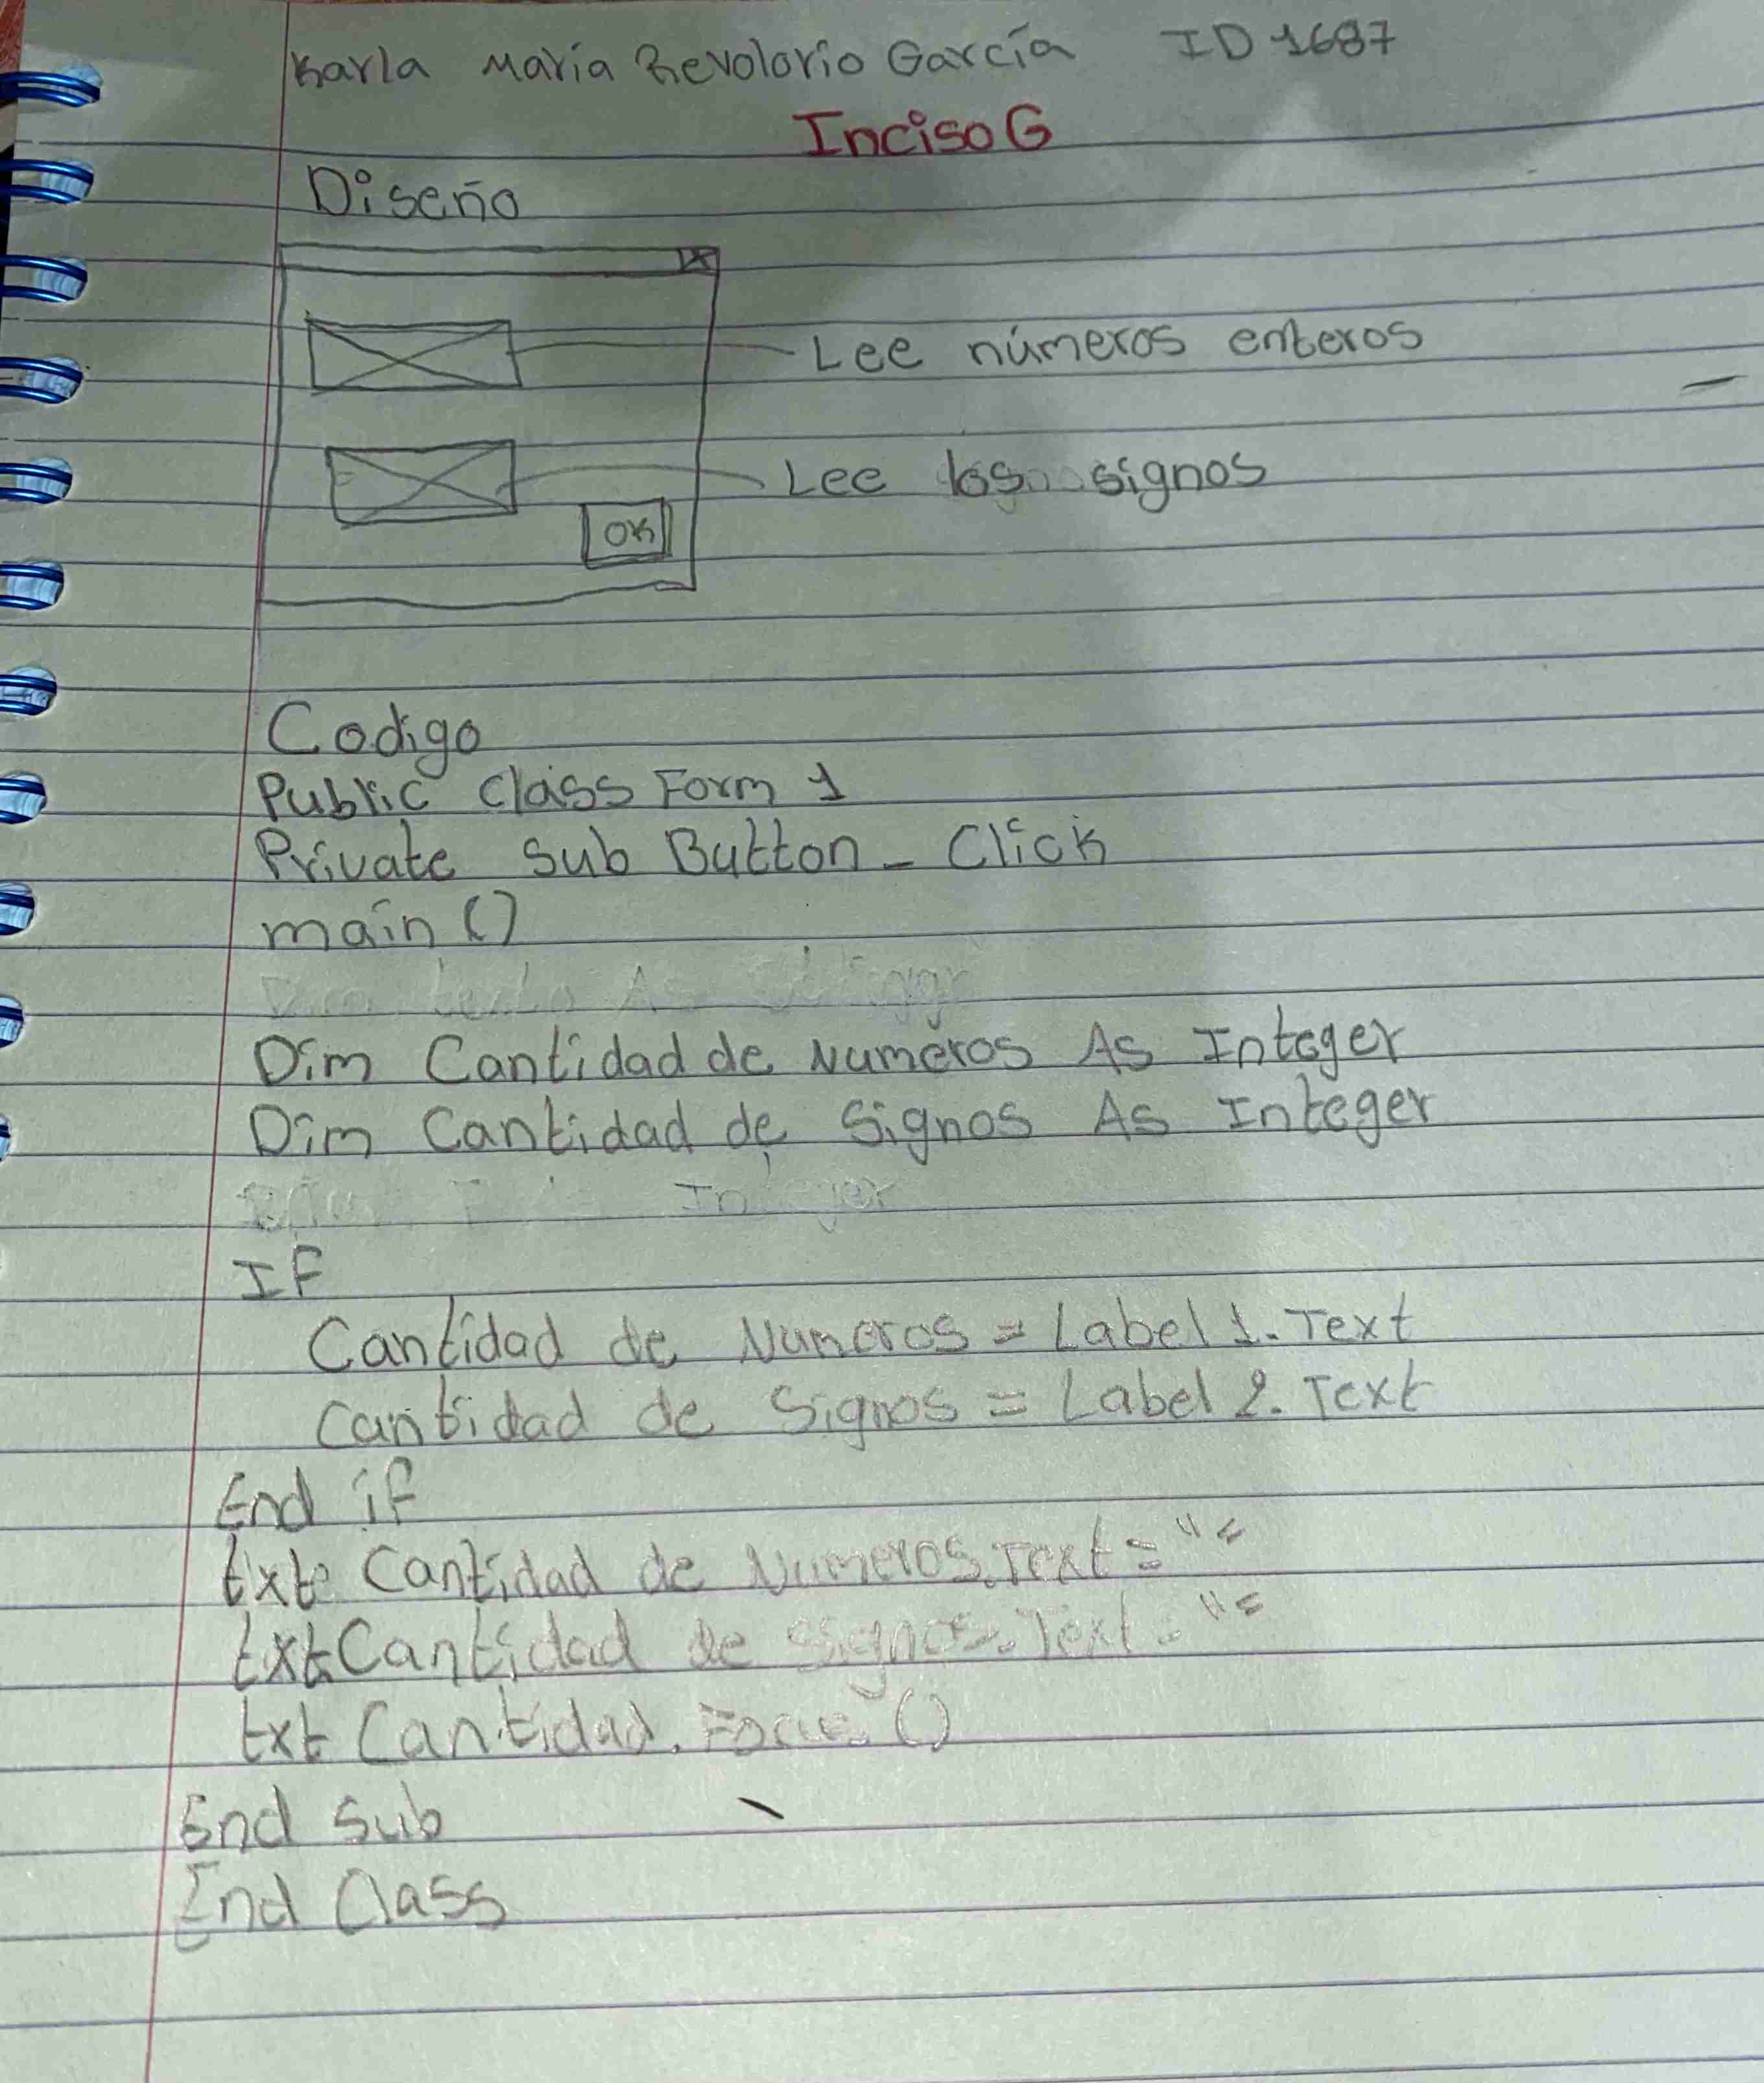 Karla María Revolorio García ID 1687
Inciso G
Diseño
Lee números enteros
Lee los signos
OK
Codigo
Public Class Form 1
Private Sub Button_Click
main ()
Dim Cantidad de Numeros As Integer
Dim Cantidad de Signos As Integer
IF
Cantidad de Numeros = Label 1. Text
Cantidad de Signos = Label 2. Text
End if
txt Cantidad de Numeros.Text = ""
txt Cantidad de Signos. Text = ""
txt Cantidad. Focus ()
End Sub
End Class